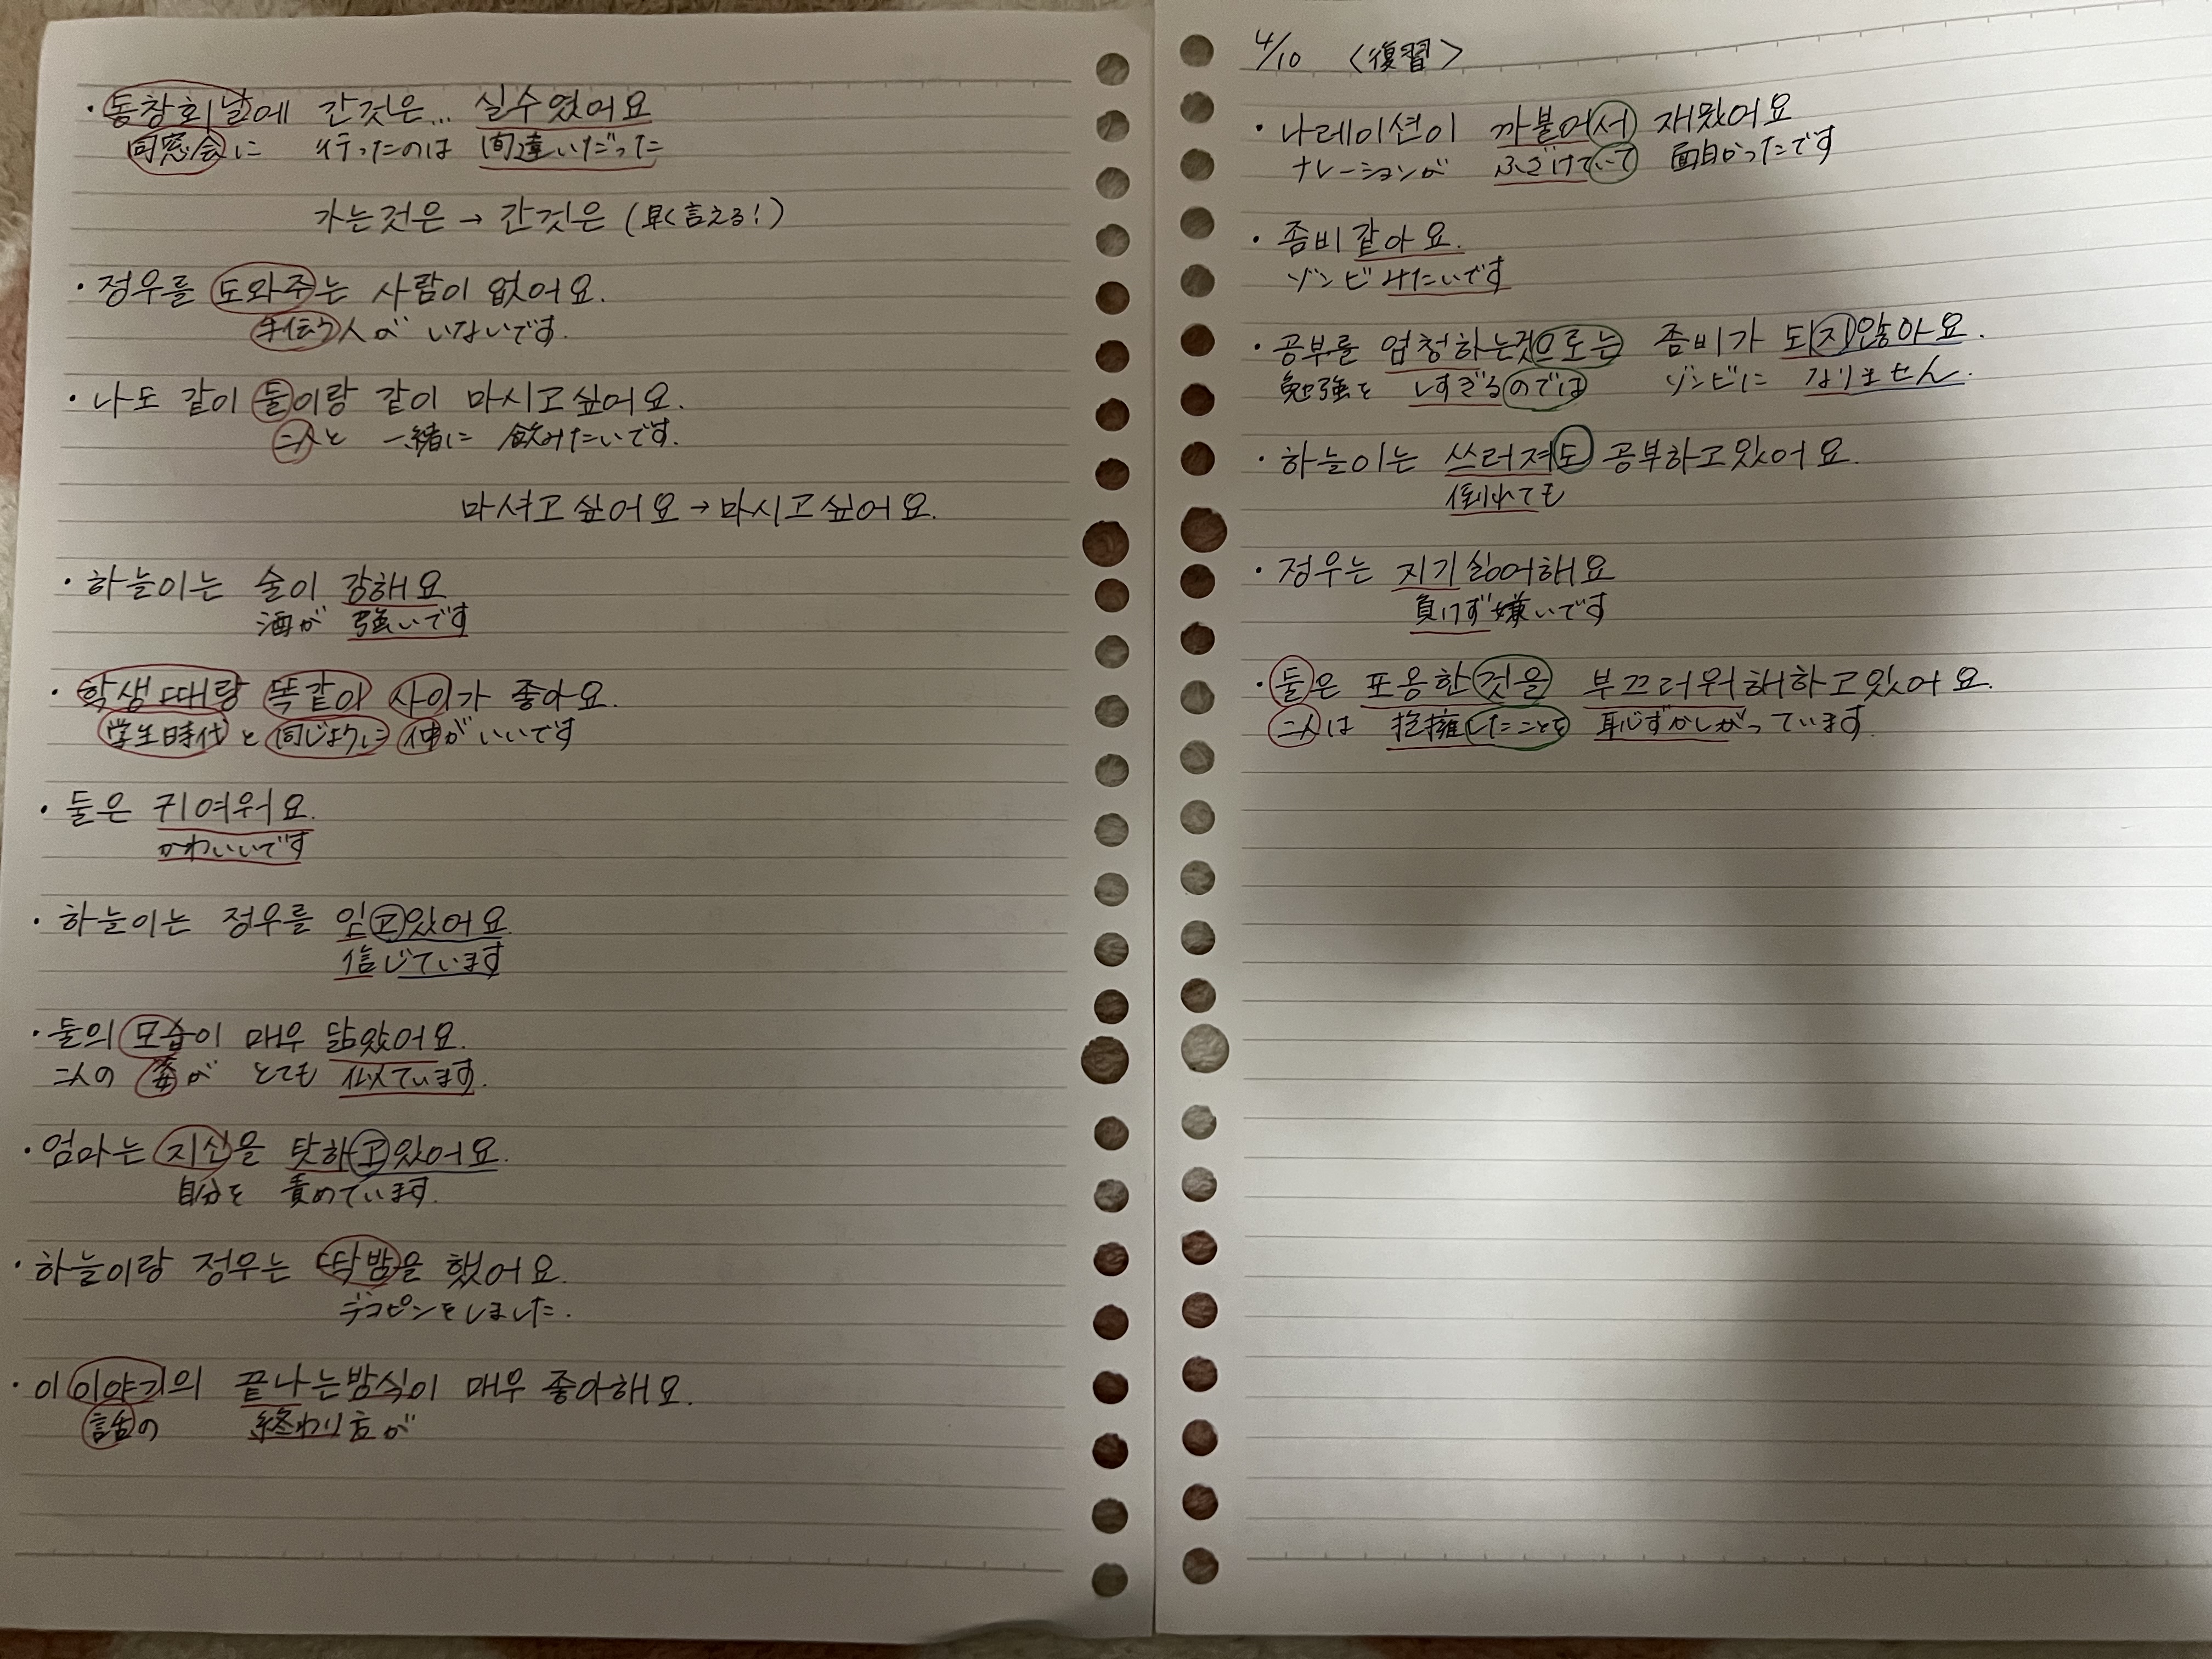 ・동창회날에 간것은... 실수였어요
同窓会に 行ったのは 間違いだった
가는것은→간것은(早く言える!)
・정우를 도와주는 사람이 없어요.
手伝う人が いないです.
・나도 같이 둘이랑 같이 마시고싶어요.
二人と 一緒に 飲みたいです.
마셔고싶어요→마시고싶어요.
・하늘이는 술이 강해요
酒が 強いです
・학생때랑 똑같이 사이가 좋아요.
学生時代と同じように 仲がいいです
・둘은 귀여워요.
かわいいです
・하늘이는 정우를 잊고있어요
信じています
・둘의 모습이 매우 닮았어요.
二人の 姿が とても 似ています.
・엄마는 지신을 탓하고있어요.
自分を 責めています.
・하늘이랑 정우는 딱밤을 했어요.
デコピンをしました.
・이 이야기의 끝나는방식이 매우 좋아해요.
話の 終わり方が
4/10 〈復習〉
・나레이션이 까불어서 재밌어요
ナレーションが ふざけていて 面白かったです
・좀비같아요.
ゾンビみたいです
・공부를 엄청하는것으로는 좀비가 되지않아요.
勉強を しすぎるのでは ゾンビに なりません.
・하늘이는 쓰러져도 공부하고있어요.
倒れても
・정우는 지기싫어해요
負けず嫌いです
・둘은 포옹한것을 부끄러워해하고있어요.
二人は 抱擁したことを 恥ずかしがっています.